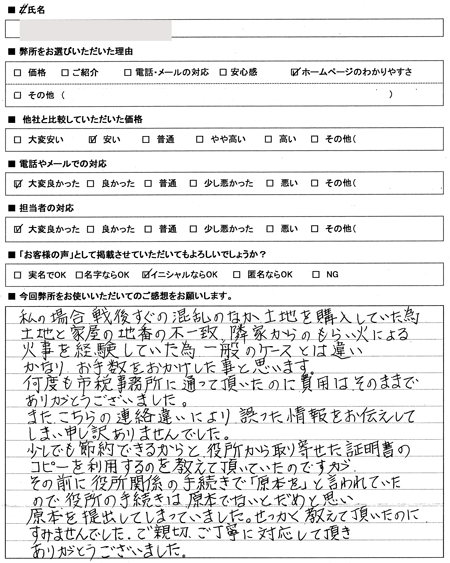 ■ お氏名
■ 弊所をお選びいただいた理由
□ 価格 □ ご紹介 □ 電話・メールの対応 □ 安心感 ☑ ホームページのわかりやすさ
□ その他 ( )
■ 他社と比較していただいた価格
□ 大変安い ☑ 安い □ 普通 □ やや高い □ 高い □ その他(
■ 電話やメールでの対応
☑ 大変良かった □ 良かった □ 普通 □ 少し悪かった □ 悪い □ その他(
■ 担当者の対応
☑ 大変良かった □ 良かった □ 普通 □ 少し悪かった □ 悪い □ その他(
■ 「お客様の声」として掲載させていただいてもよろしいでしょうか？
□ 実名でOK □ 名字ならOK ☑ イニシャルならOK □ 匿名ならOK □ NG
■ 今回弊所をお使いいただいてのご感想をお願いします。
私の場合 戦後すぐの混乱のなか土地を購入していた為
土地と家屋の地番の不一致、隣家からのもらい火による
火事を経験していた為 一般のケースとは違い
かなり お手数をおかけした事と思います。
何度も市税事務所に通って頂いたのに費用は、そのままで
ありがとうございました。
また、こちらの連絡違いにより 誤った情報をお伝えして
しまい申し訳ありませんでした。
少しでも節約できるからと、役所から取り寄せた証明書の
コピーを利用するのを教えて頂いていたのですが、
その前に役所関係の手続きで「原本を」と言われていた
ので役所の手続きは原本でないとだめと思い
原本を提出してしまっていました。せっかく教えて頂いたのに
すみませんでした。ご親切、ご丁寧に対応して頂き
ありがとうございました。